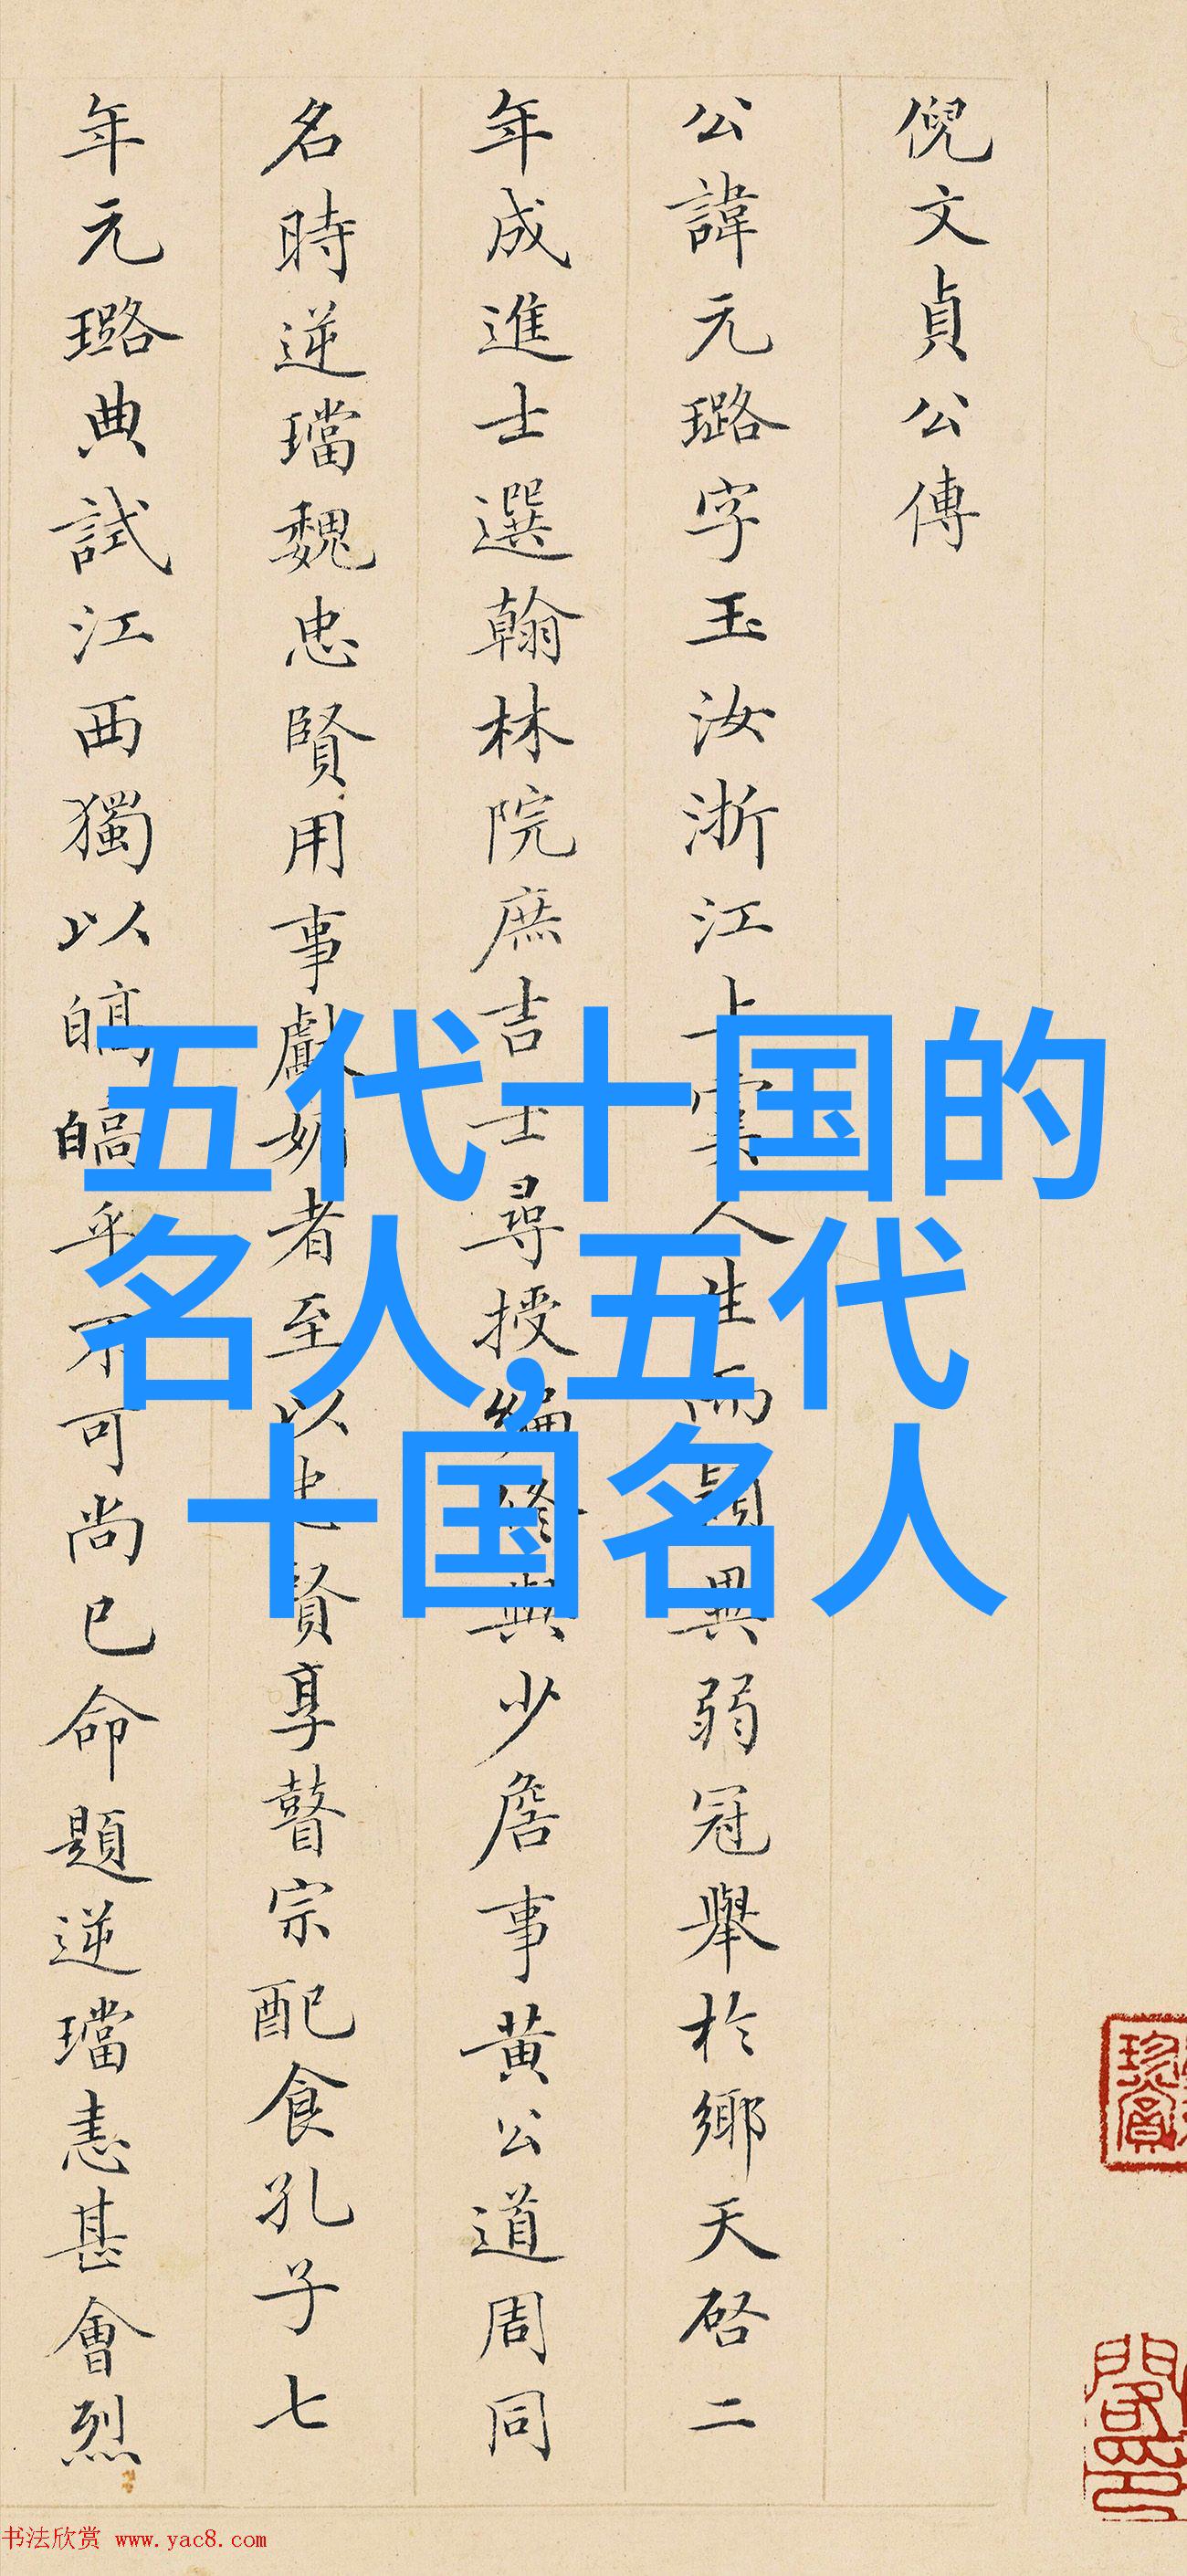 倪文貞公傳
公諱元璐字玉汝浙江上虞人生而穎異弱冠舉於鄉天啓二
年成進士選翰林院庶吉士尋授編修與少詹事黄公道周同
名時逆璫魏忠賢用事獻媚者至以忠賢享瞽宗配食孔子七
年元璐典試江西獨以皜皜乎不可尚已命題逆璫恚甚會烈
五代十国的
名人,五代
十国名人
书法欣赏 www.yac8.com